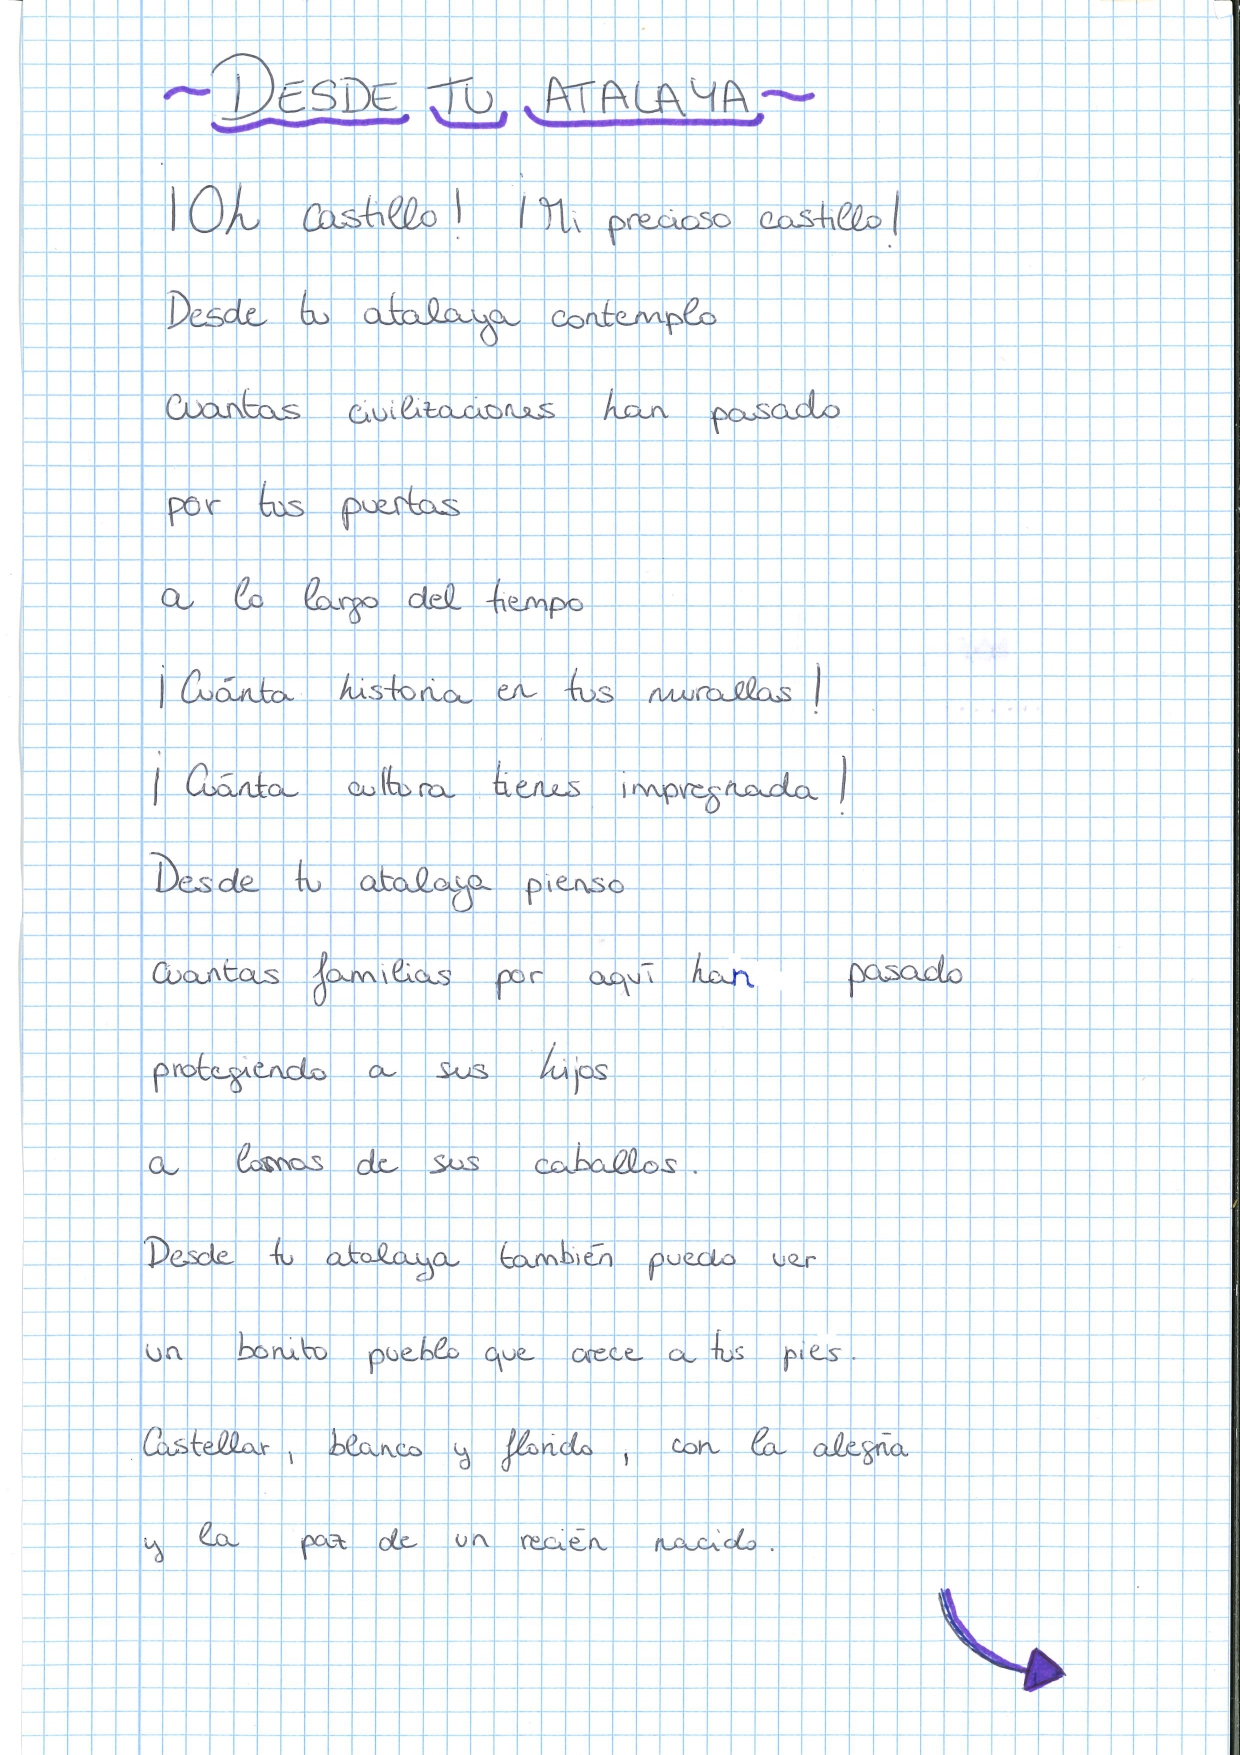 ~ DESDE TU ATALAYA ~
¡Oh castillo! ¡Mi precioso castillo!
Desde tu atalaya contemplo
cuantas civilizaciones han pasado
por tus puertas
a lo largo del tiempo
¡Cuánta historia en tus murallas!
¡Cuánta cultura tienes impregnada!
Desde tu atalaya pienso
cuantas familias por aquí han pasado
protegiendo a sus hijos
a lomos de sus caballos.
Desde tu atalaya también puedo ver
un bonito pueblo que crece a tus pies.
Castellar, blanco y florido, con la alegría
y la paz de un recién nacido.